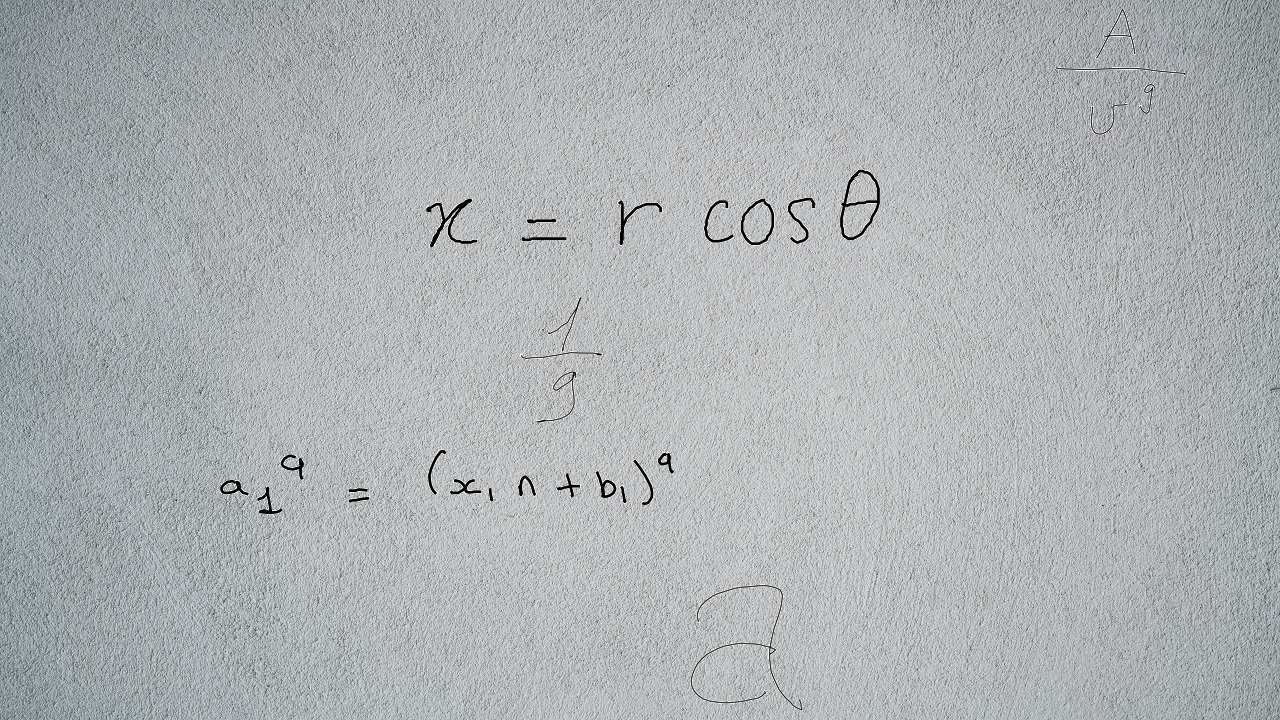 A/σ^g
x = r cos θ
1/9
a_1^q = (x_1 n + b_1)^q
a